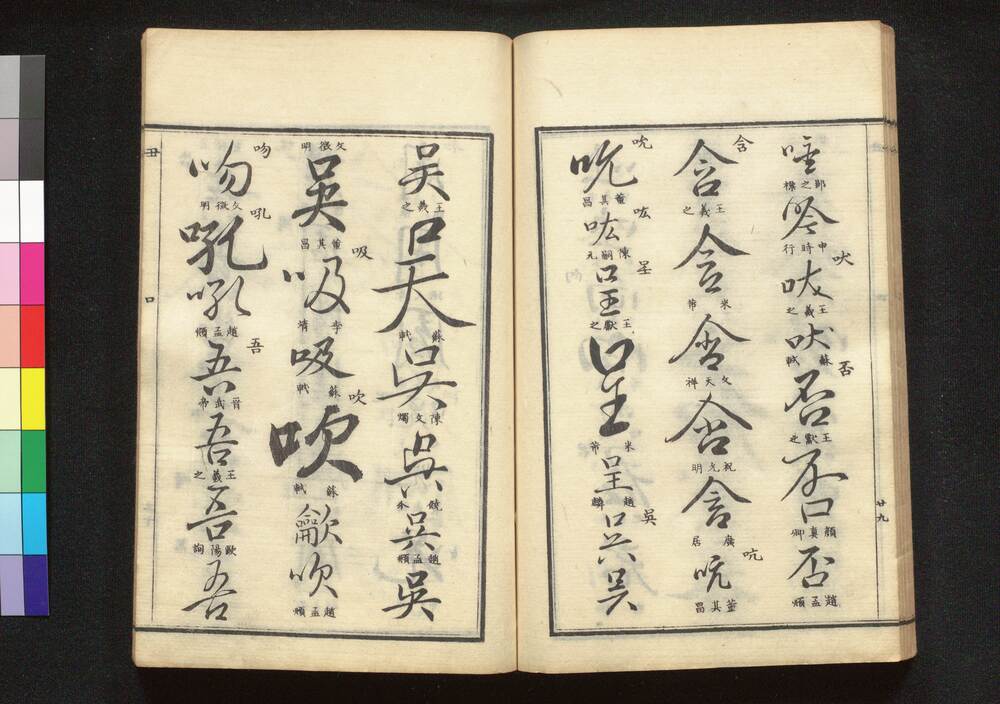 申時行 吠 吠 王羲之 吠 蘇軾 否 否 王獻之 否 顏真卿 否 趙孟頫
含 含 王羲之 含 米芾 含 文天祥 含 祝允明 含 廣居 吭 吭 董其昌
吮 吮 董其昌 吰 吰 陳嗣元 呈 呈 王獻之 呈 米芾 呈 趙麟 吳 吳 吳
吳 王羲之 吳 蘇軾 吳 陳文燭 吳 饒介 吳 趙孟頫 吳
文徵明 吳 董其昌 吸 吸 李靖 吸 蘇軾 吹 吹 蘇軾 龡 吹 趙孟頫
吻 吻 文徵明 吼 吼 吼 趙孟頫 吾 吾 晉武帝 吾 王羲之 吾 歐陽詢 吾
廿九
丑 口